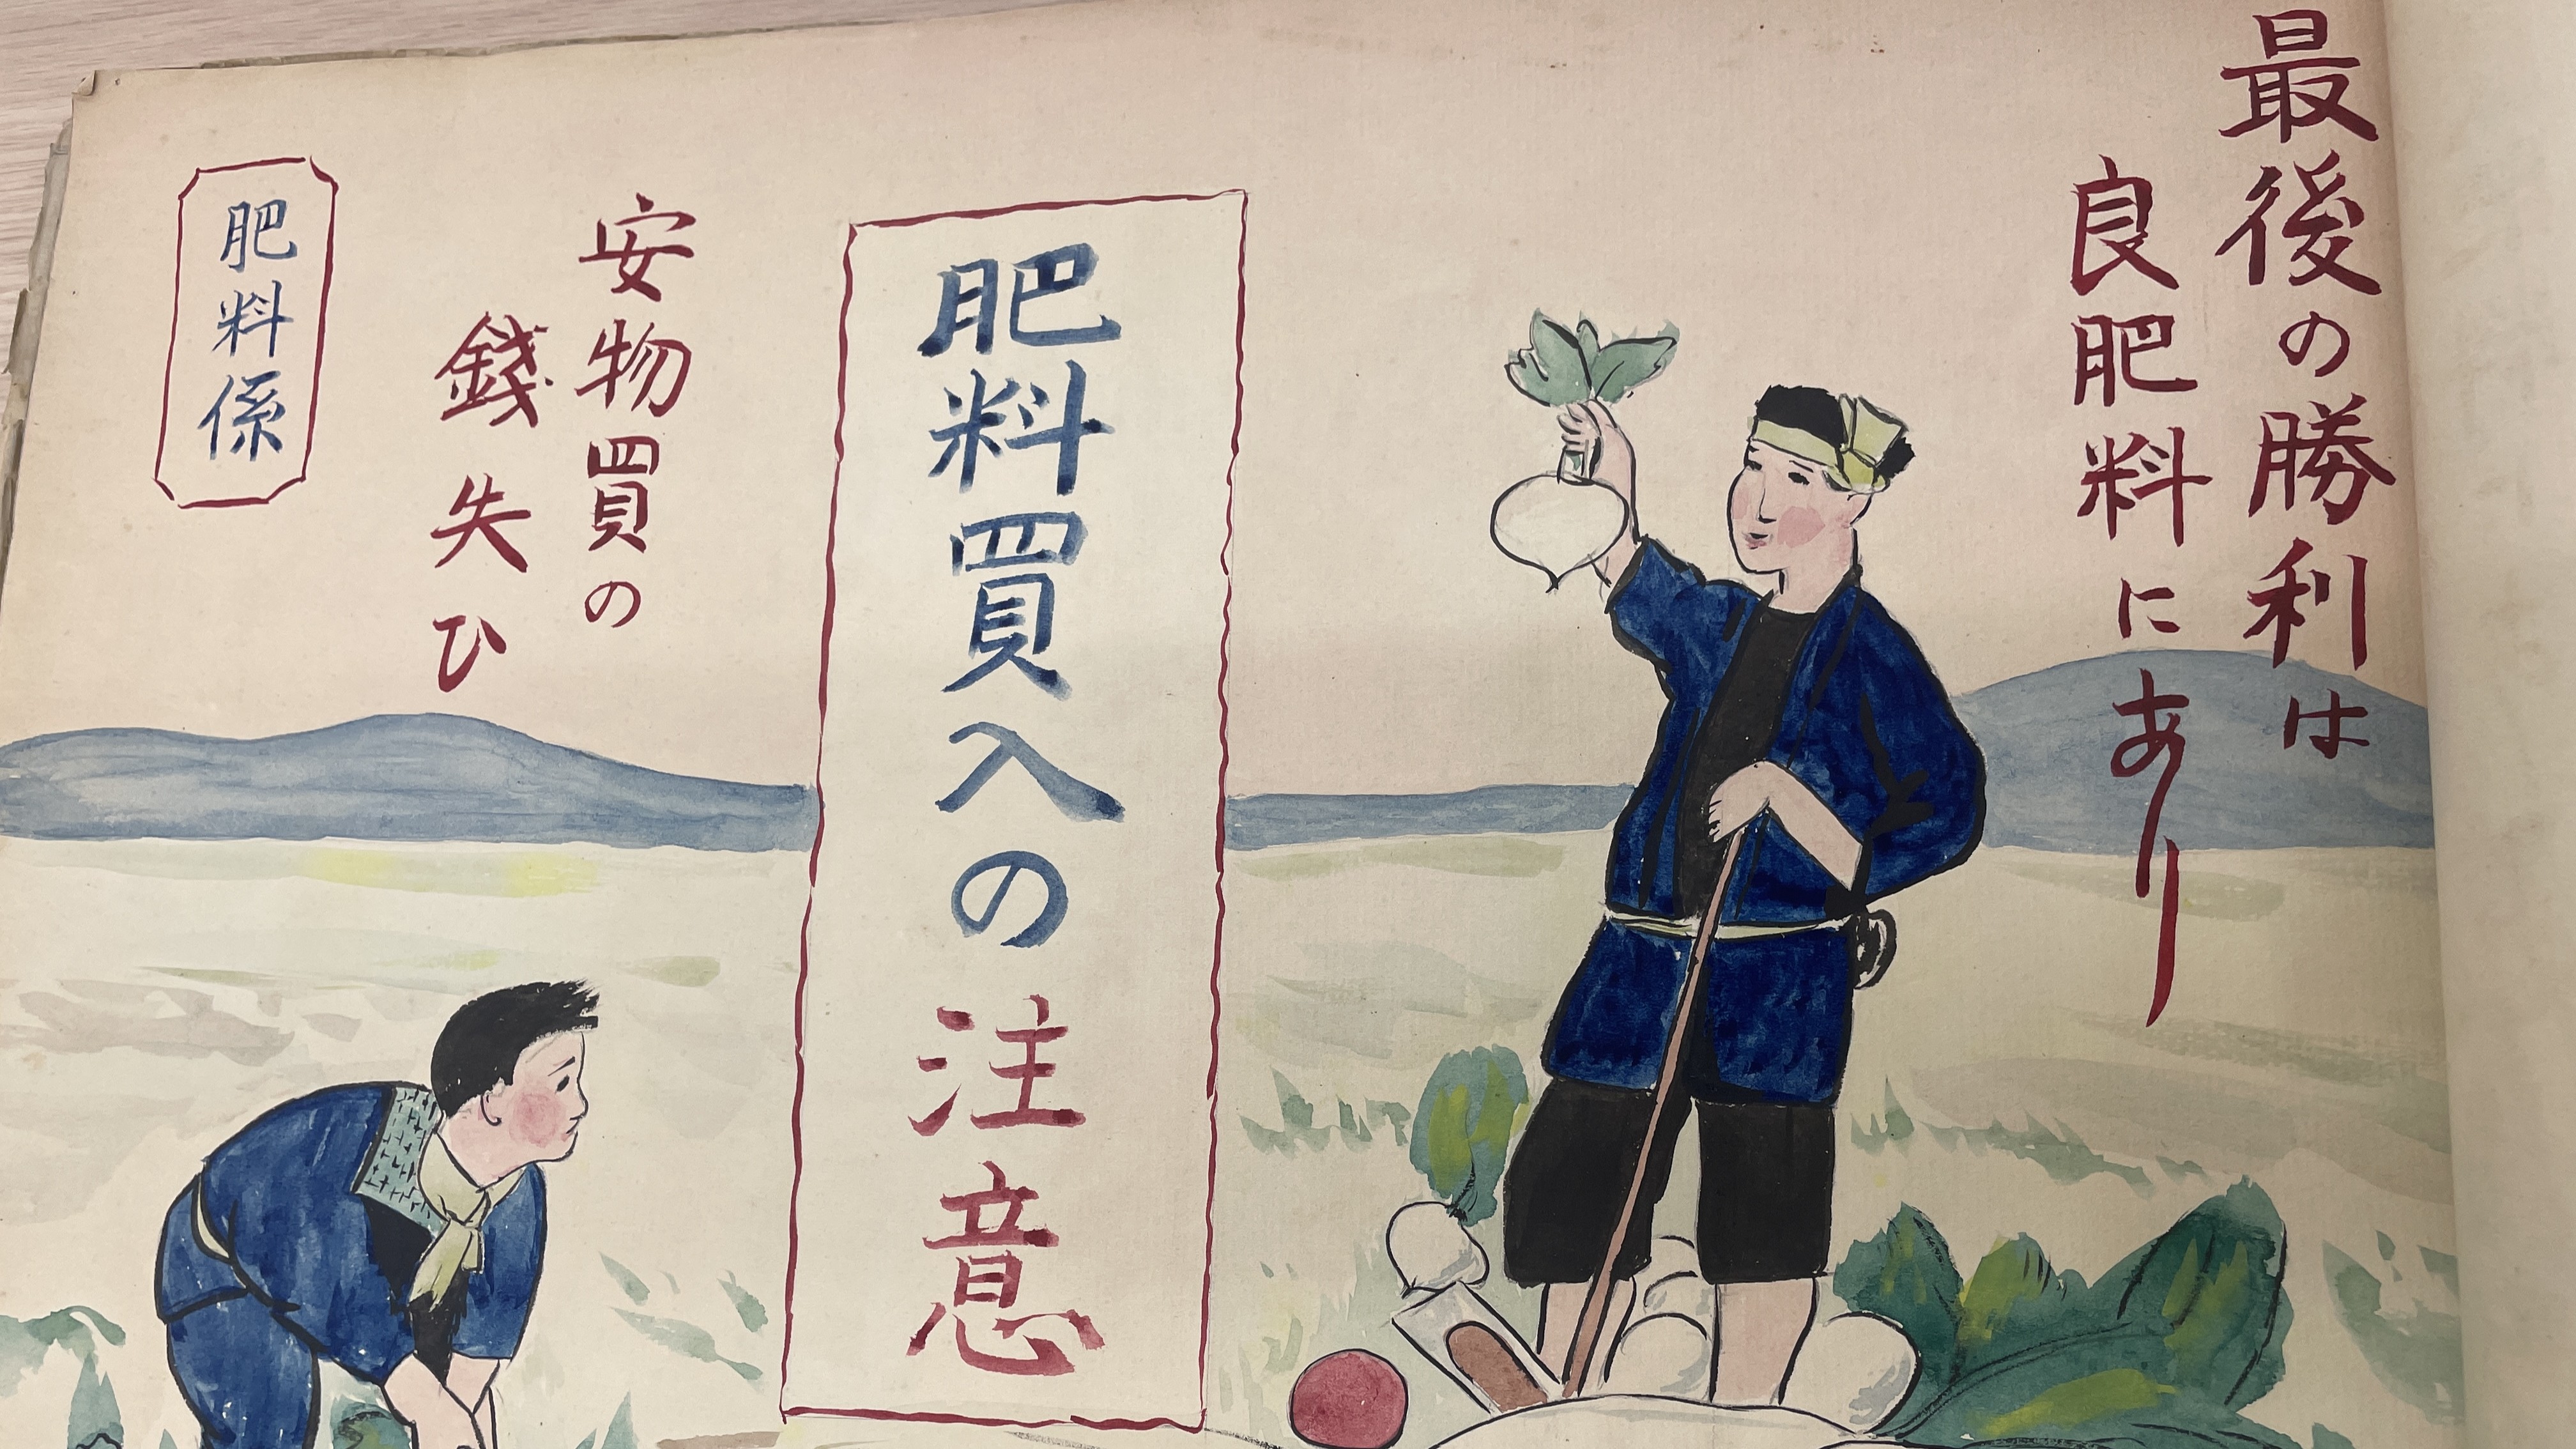 最後の勝利は
良肥料にあり
肥料買入の注意
安物買の
錢失ひ
肥料係